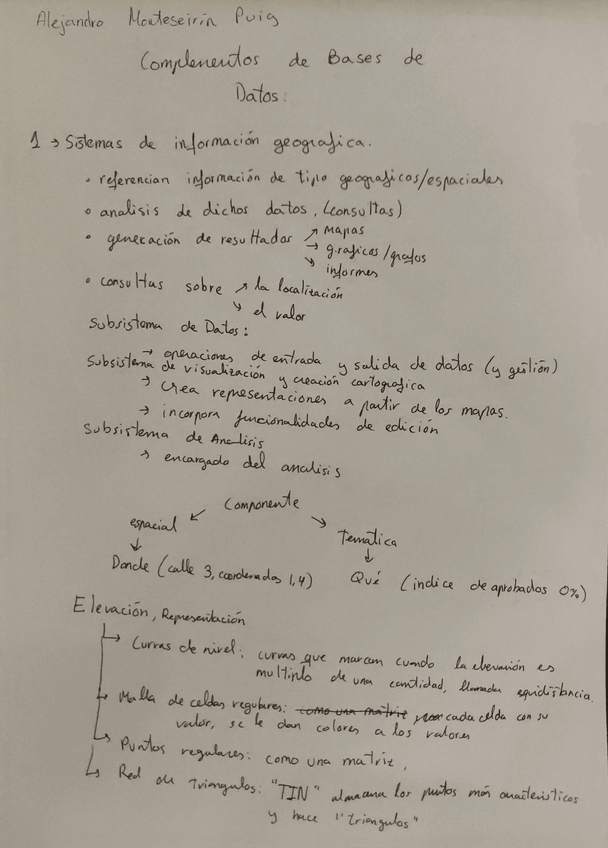 Alejandro Monteseirín Puig
Complementos de Bases de
Datos:
1 → Sistemas de información geografica.
• referencian información de tipo geograficos/espaciales
• analisis de dichos datos. (consultas)
• generación de resultados ↗ Mapas
→ graficos/grafos
↘ informes
• consultas sobre ↗ la localización
↘ el valor
Subsistema de Datos:
→ operaciones de entrada y salida de datos (y gestión)
Subsistema de visualización y creación cartografica
→ Crea representaciones a partir de los mapas.
→ incorpora funcionalidades de edición
Subsistema de Analisis
→ encargado del analisis
Componente
espacial ↙ ↘ Temática
↓ ↓
Donde (calle 3, coordenadas 1,4) Qué (indice de aprobados 0%)
Elevación, Representación
→ Curvas de nivel: curvas que marcan cuando la elevación es
multiplo de una cantidad, llamadas equidistancia.
→ Malla de celdas regulares: como una matriz cada celda con su
valor, se le dan colores a los valores
→ Puntos regulares: como una matriz,
→ Red de triangulos: "TIN" almacena los puntos más caracteristicos
y hace "triangulos"